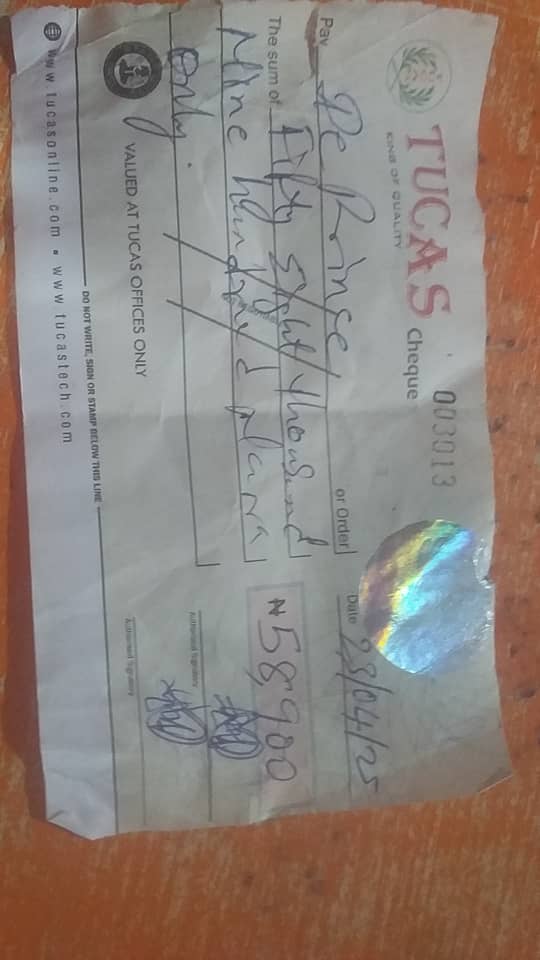 TUCAS Cheque 003013
KING OF QUALITY
Date 23/04/25
Pay De Prince or Order
The sum of Fifty Eight thousand
Nine hundred Naira
₦58,900
Only.
Authorised Signatory
VALUED AT TUCAS OFFICES ONLY
Authorised Signatory
DO NOT WRITE, SIGN OR STAMP BELOW THIS LINE
www.tucasonline.com • www.tucastech.com